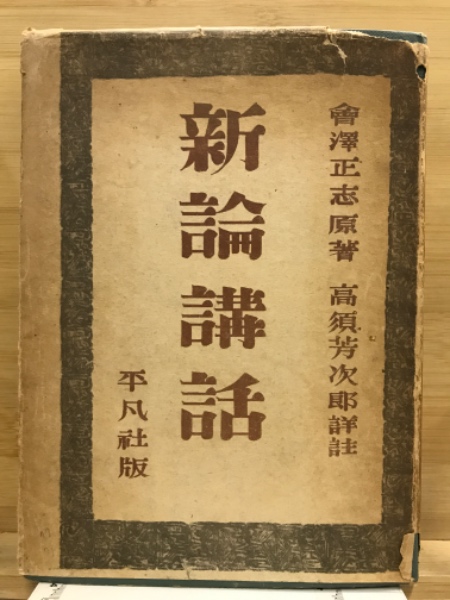 會澤正志原著 高須芳次郎詳註
新論講話
平凡社版